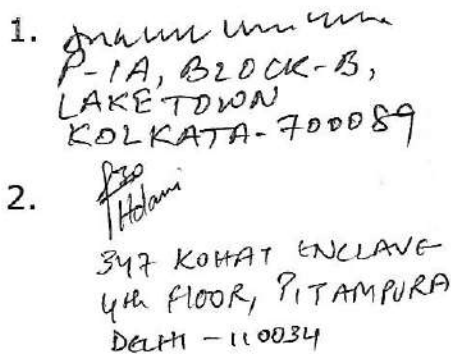 1.
P-1A, BLOCK-B,
LAKE TOWN
KOLKATA-700089
2.
347 KOHAT ENCLAVE
4th FLOOR, PITAMPURA
DELHI - 110034